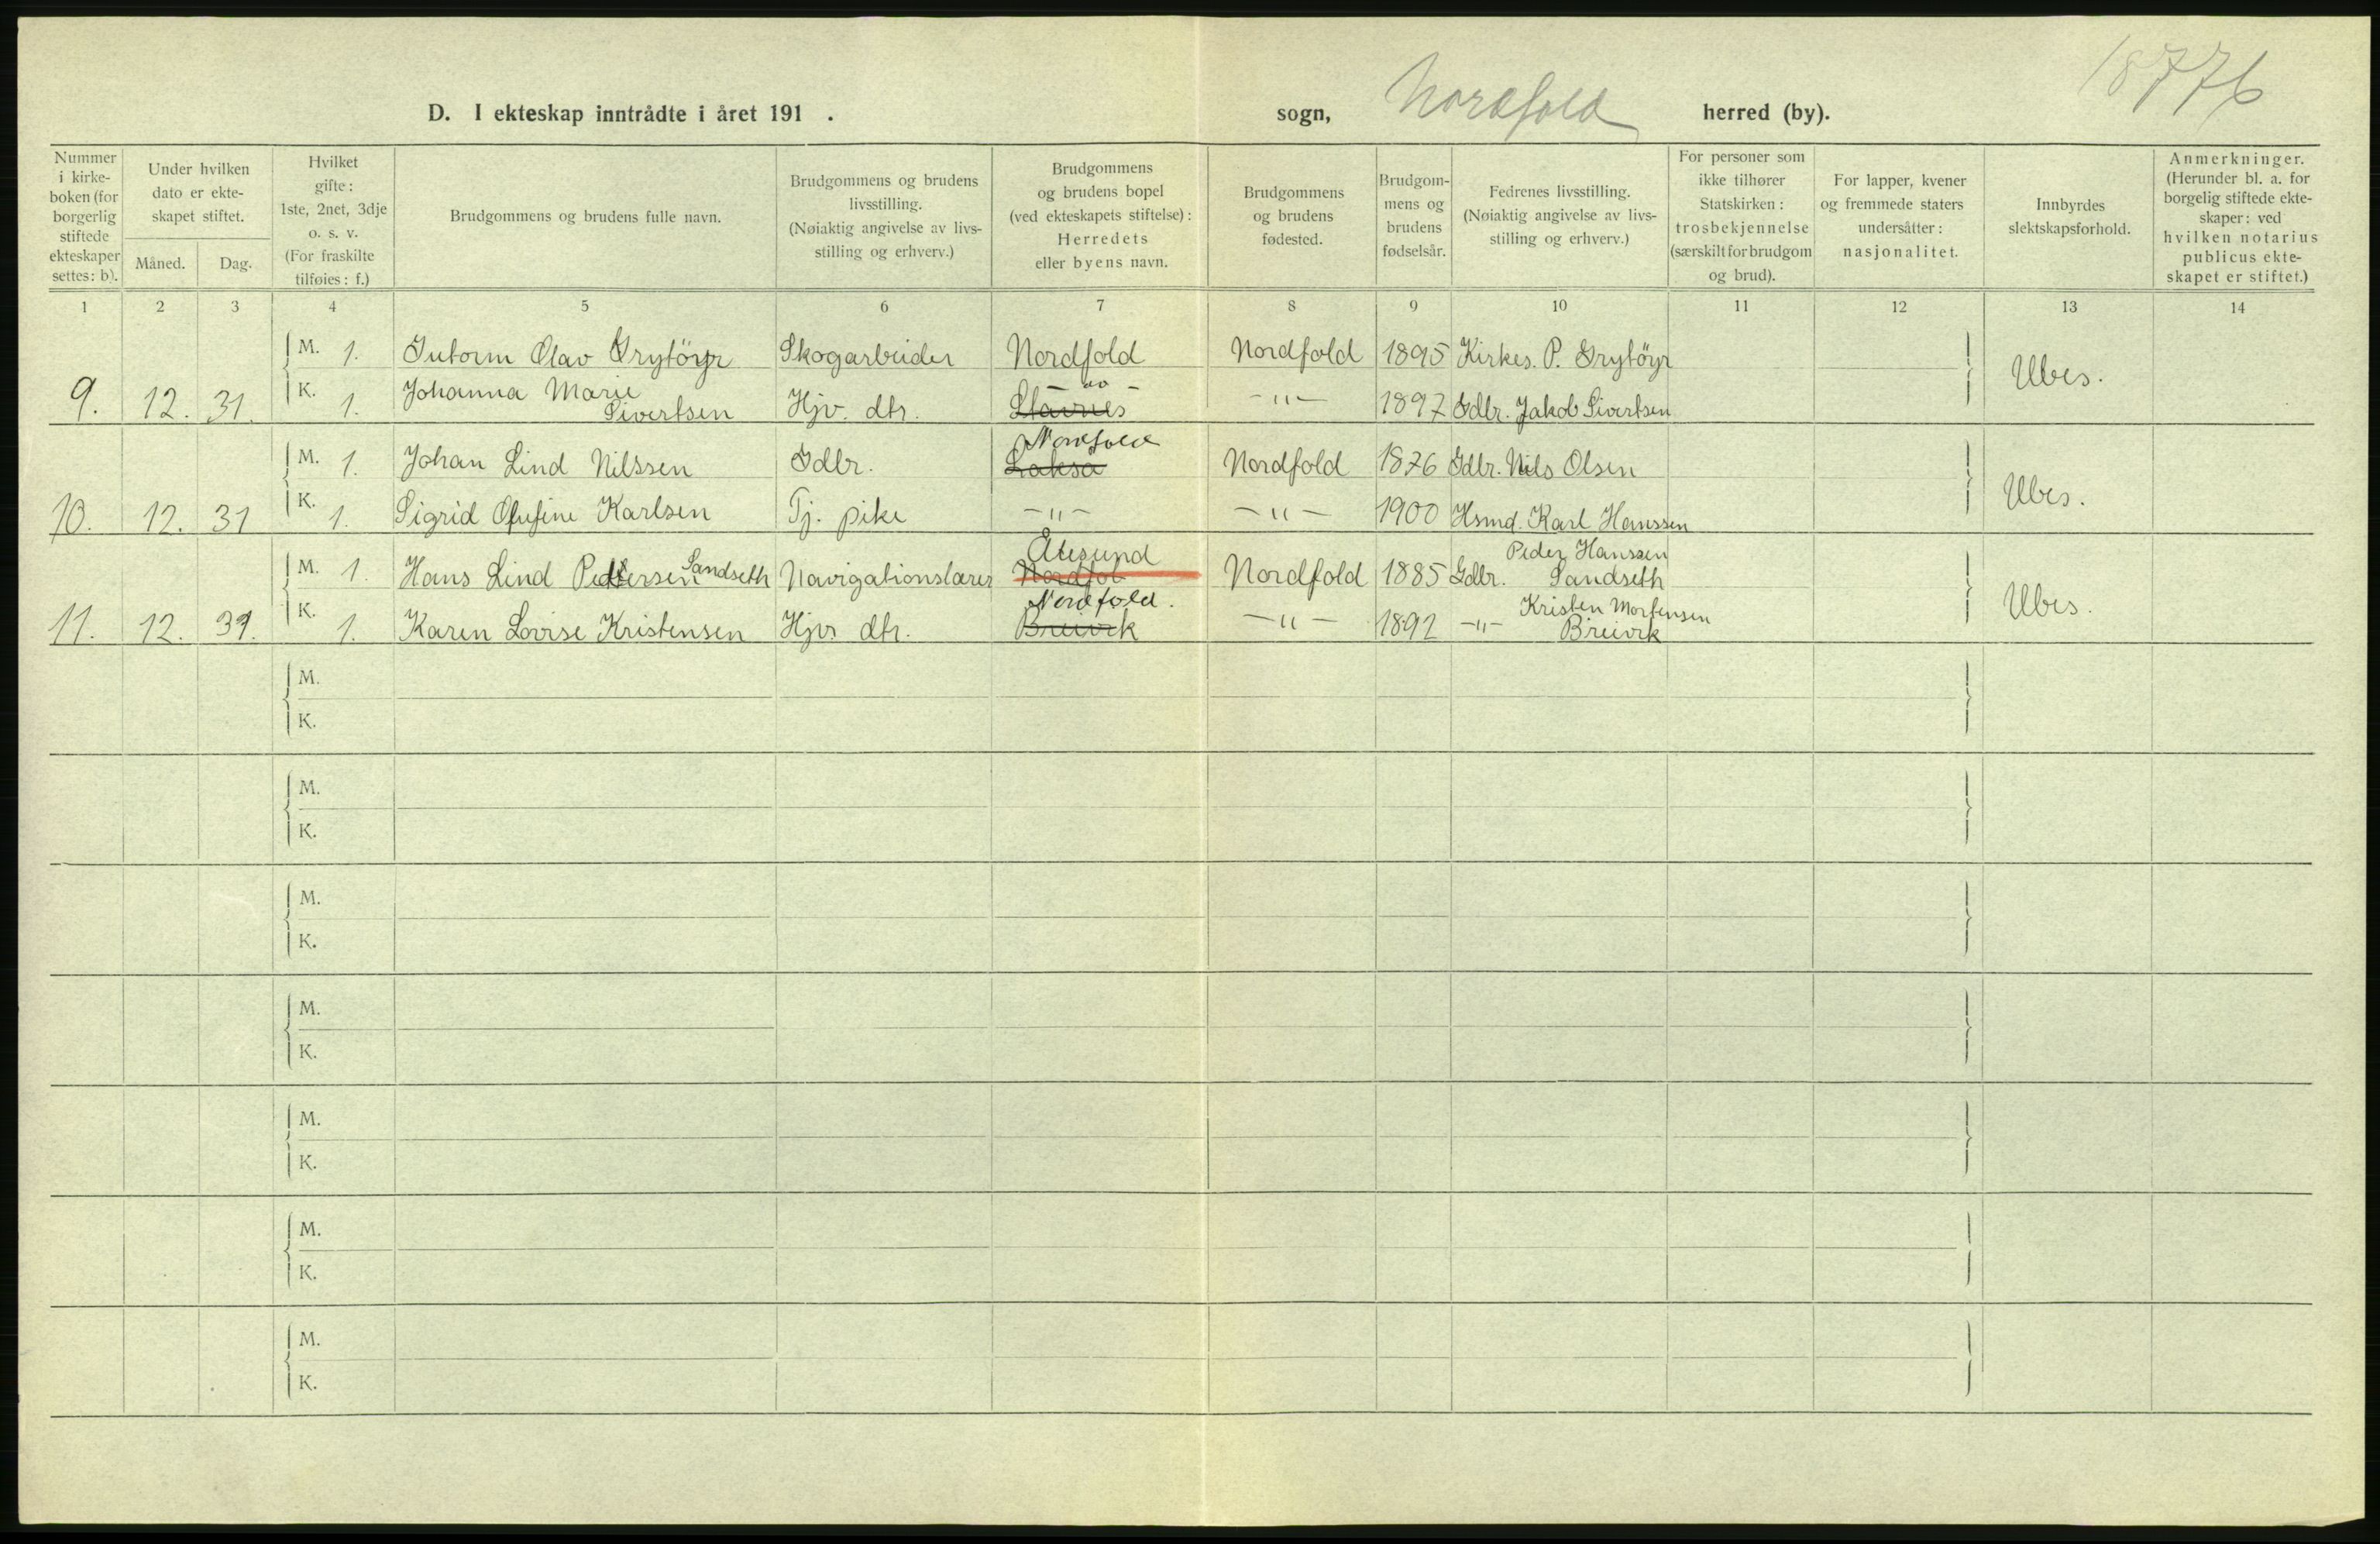 18776
D. I ekteskap inntrådte i året 191 .
sogn, Nordfold herred (by).
Nummer i kirke-boken (for borgerlig stiftede ekteskaper settes: b).
Under hvilken dato er ekte-skapet stiftet.
Måned. Dag.
Hvilket gifte: 1ste, 2net, 3dje o. s. v. (For fraskilte tilføies: f.)
Brudgommens og brudens fulle navn.
Brudgommens og brudens livsstilling. (Nøiaktig angivelse av livs-stilling og erhverv.)
Brudgommens og brudens bopel (ved ekteskapets stiftelse): Herredets eller byens navn.
Brudgommens og brudens fødested.
Brudgom-mens og brudens fødselsår.
Fedrenes livsstilling. (Nøiaktig angivelse av livs-stilling og erhverv.)
For personer som ikke tilhører Statskirken: trosbekjennelse (særskilt for brudgom og brud).
For lapper, kvener og fremmede staters undersåtter: nasjonalitet.
Innbyrdes slektskapsforhold.
Anmerkninger. (Herunder bl. a. for borgelig stiftede ekte-skaper: ved hvilken notarius publicus ekte-skapet er stiftet.)
1 2 3 4 5 6 7 8 9 10 11 12 13 14
M. 1. Gutorm Olav Grytöyr Skogarbeider Nordfold Nordfold 1895 Kirkes. P. Grytöyr
9. 12. 31. K. 1. Johanna Marie Sivertsen Hjv. dtr. — " — Stavnes — " — 1897 Gdbr. Jakob Sivertsen Ubes.
M. 1. Johan Lind Nilssen Gdbr. Nordfold Lakså Nordfold 1876 Gdbr. Nils Olsen
10. 12. 31 K. 1. Sigrid Olufine Karlsen Tj. pike — " — — " — 1900 Hsmd. Karl Hanssen Ubes.
M. 1. Hans Lind Pedersen Sandseth Navigationslærer Ålesund Nordfol Nordfold 1885 Gdbr. Peder Hanssen Sandseth
11. 12. 31. K. 1. Karen Lovise Kristensen Hjv. dtr. Nordfold. Breivik — " — 1892 — " — Kristen Mortensen Breivik Ubes.
M.
K.
M.
K.
M.
K.
M.
K.
M.
K.
M.
K.
M.
K.